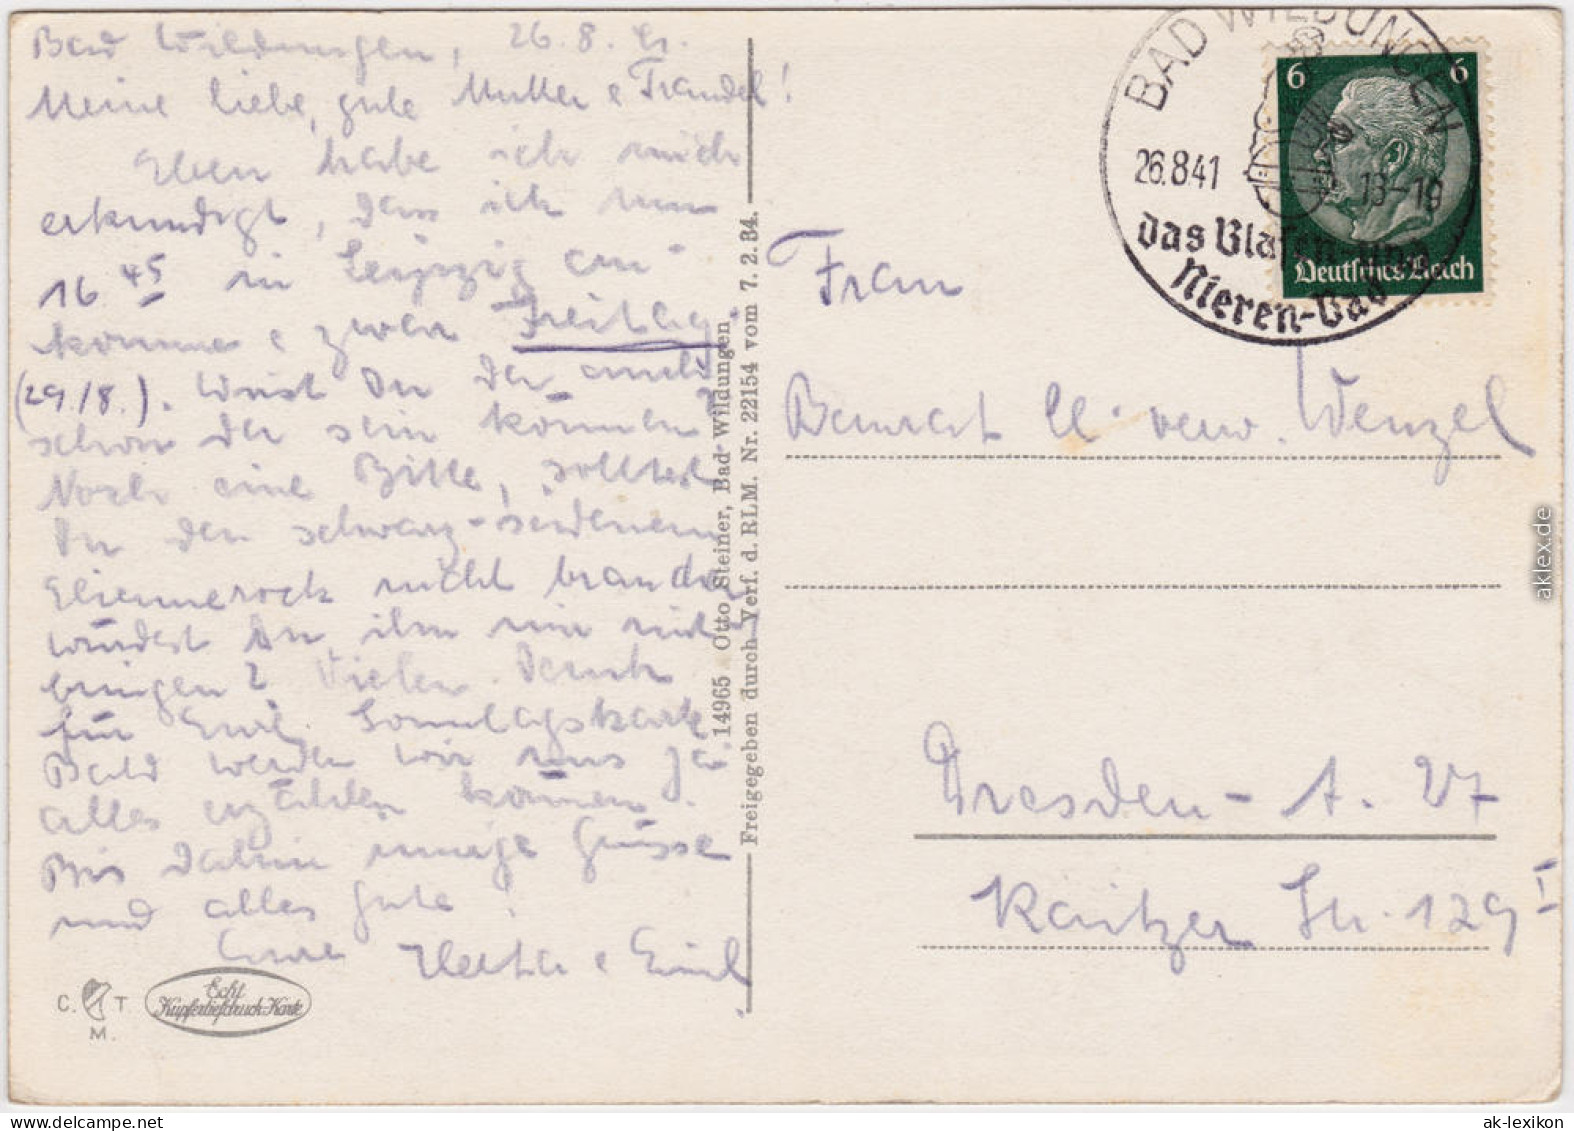 Bad Wildungen, 26.8.41.
Meine liebe, gute Mutter & Trandel!
Eben habe ich mich
erkundigt, dass ich nun
16 45 in Leipzig an-
komme & zwar Freitag
(29./8.). Wirst Du da
schon da sein können?
Noch eine Bitte, solltest
Du den schwarz-seidenen
nicht brauchen
würdest Du ihn mir mit
bringen? Vielen Dank
für Eure Sonntagskarte
Bald werden wir uns ja
alles erzählen können.
Bis dahin innige Grüsse
und alles Gute!
Eure Hertha & Emil
C. T.
M.
Echt
Kupfertiefdruck-Karte
14965 Otto Steiner, Bad Wildungen
Freigegeben durch Verf. d. RLM. Nr. 22154 vom 7. 2. 34.
BAD WILDUNGEN
26.8.41 18-19
das Blasen-und
Nieren-Bad
6 6
Deutsches Reich
Frau
Baurat verw. Wenzel
Dresden - A. 27
Kaitzer Str. 129 I
aklex.de
My-Postcard.com
ak-lexikon